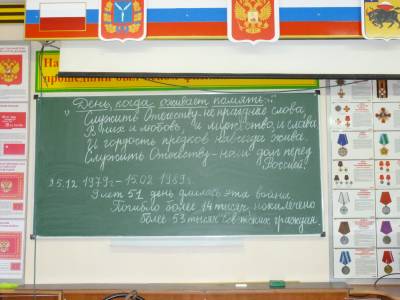 На
прошедший
"День, когда оживает память..."
"Служить Отечеству - не праздные слова,
В них и любовь, и мужество, и слава,
И гордость предков навсегда жива
Служить Отечеству - наш долг перед
Россией."
25.12.1979г. - 15.02.1989г.
9 лет 51 день длилась эта война.
Погибло более 14 тысяч, покалечено
более 53 тысяч советских граждан